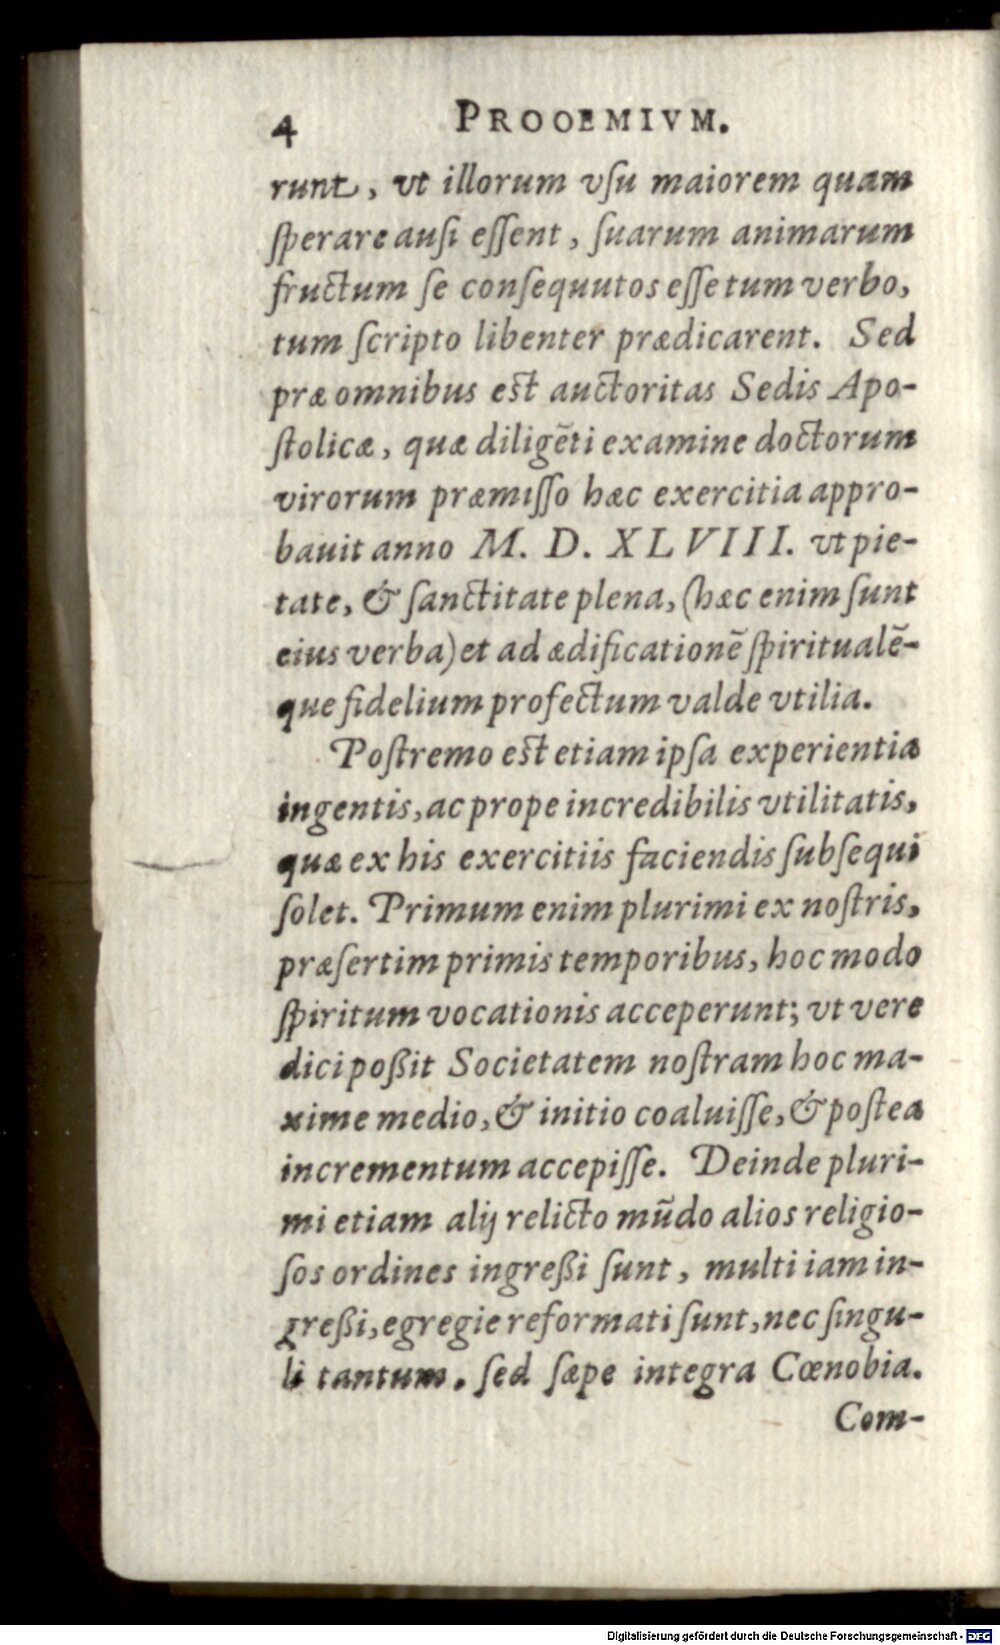 4 PROOEMIVM.
runt, vt illorum vſu maiorem quam
ſperare auſi eſſent, ſuarum animarum
fructum ſe conſequutos eſſe tum verbo,
tum ſcripto libenter prædicarent. Sed
præ omnibus est auctoritas Sedis Apo-
ſtolicæ, quæ diligẽti examine doctorum
virorum præmiſſo hæc exercitia appro-
bauit anno M. D. XLVIII. vt pie-
tate, & ſanctitate plena, (hæc enim ſunt
eius verba) et ad ædificationẽ ſpiritualẽ-
que fidelium profectum valde vtilia.
Poſtremo est etiam ipſa experientia
ingentis, ac prope incredibilis vtilitatis,
quæ ex his exercitiis faciendis ſubſequi
ſolet. Primum enim plurimi ex noſtris,
præſertim primis temporibus, hoc modo
ſpiritum vocationis acceperunt; vt vere
dici poßit Societatem noſtram hoc ma-
xime medio, & initio coaluiſſe, & poſtea
incrementum accepiſſe. Deinde pluri-
mi etiam alij relicto mũdo alios religio-
ſos ordines ingreßi ſunt, multi iam in-
greßi, egregie reformati ſunt, nec ſingu-
li tantum, ſed ſæpe integra Cœnobia.
Com-
Digitalisierung gefördert durch die Deutsche Forschungsgemeinschaft - DFG